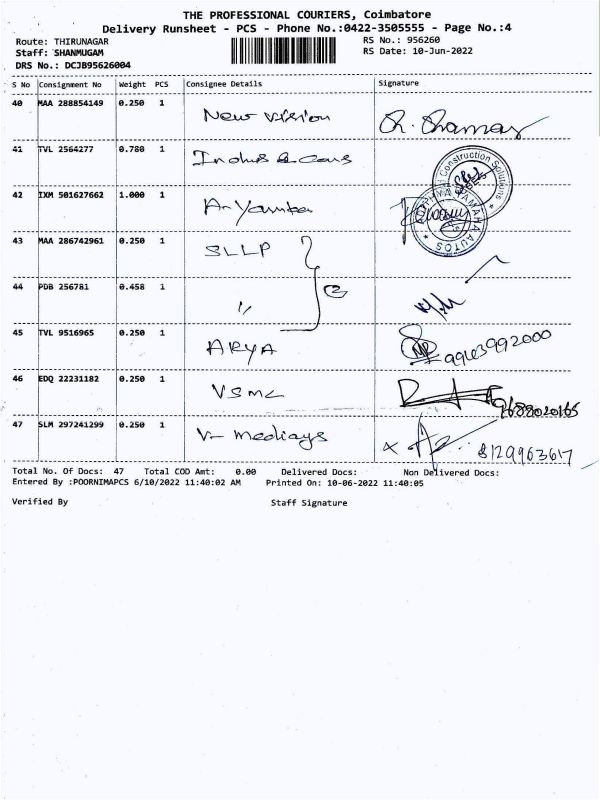 THE PROFESSIONAL COURIERS, Coimbatore
Delivery Runsheet - PCS - Phone No.:0422-3505555 - Page No.:4
Route: THIRUNAGAR RS No.: 956260
Staff: SHANMUGAM RS Date: 10-Jun-2022
DRS No.: DCJB95626004
S No Consignment No Weight PCS Consignee Details Signature
40 MAA 288854149 0.250 1 New vision
41 TVL 2564277 0.780 1
Construction Solutions
42 IXM 501627662 1.000 1
YAMAHA AUTOS
43 MAA 286742961 0.250 1 SLLP
2
44 PDB 256781 0.458 1 "
45 TVL 9516965 0.250 1 ARYA 9943992000
46 EDQ 22231182 0.250 1 VSMC 9688020165
47 SLM 297241299 0.250 1 V- mediays 8129963617
Total No. Of Docs: 47 Total COD Amt: 0.00 Delivered Docs: Non Delivered Docs:
Entered By :POORNIMAPCS 6/10/2022 11:40:02 AM Printed On: 10-06-2022 11:40:05
Verified By Staff Signature